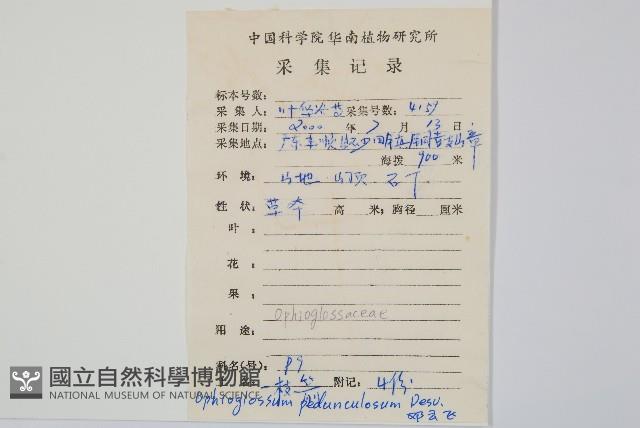 中国科学院华南植物研究所
采集记录
标本号数:
采集人: 叶华谷 采集号数: 4159
采集日期: 2000 年 7 月 13 日
采集地点: 广东丰顺
海拨 900 米
环境: 山地 山顶 石下
性状: 草本 高 米; 胸径 厘米
叶:
花:
果:
Ophioglossaceae
用途:
科名(号): P9
一枝 附记: 4份
Ophioglossum pedunculosum Desv.
邓云飞
國立自然科學博物館
NATIONAL MUSEUM OF NATURAL SCIENCE